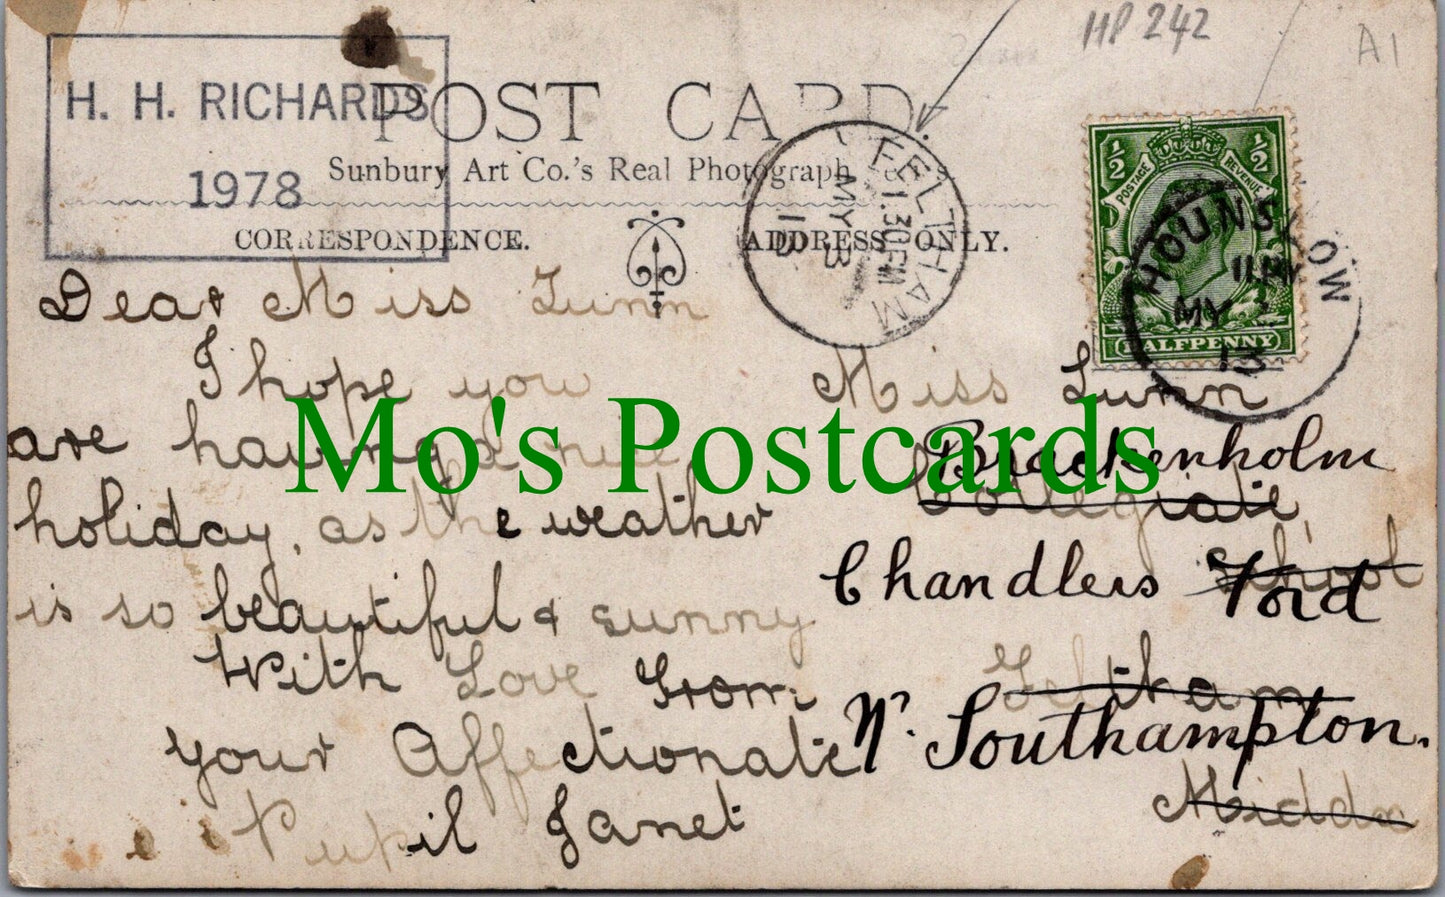 HP 242
A1
H. H. RICHARDS
1978
POST CARD.
Sunbury Art Co.'s Real Photograph
CORRESPONDENCE.
ADDRESS ONLY.
FELTHAM
1.30 PM
MY 3
13
½ ½
POSTAGE REVENUE
HALFPENNY
HOUNSLOW
11 PM
MY 2
13
Dear Miss Lunn
I hope you
are having a nice
holiday, as the weather
is so beautiful & sunny
With Love From
your Affectionate
Pupil Janet
Miss Lunn
Brackenholm
Collegiate
Chandlers Ford
School
Feltham
Nr. Southampton.
Middx
Mo's Postcards